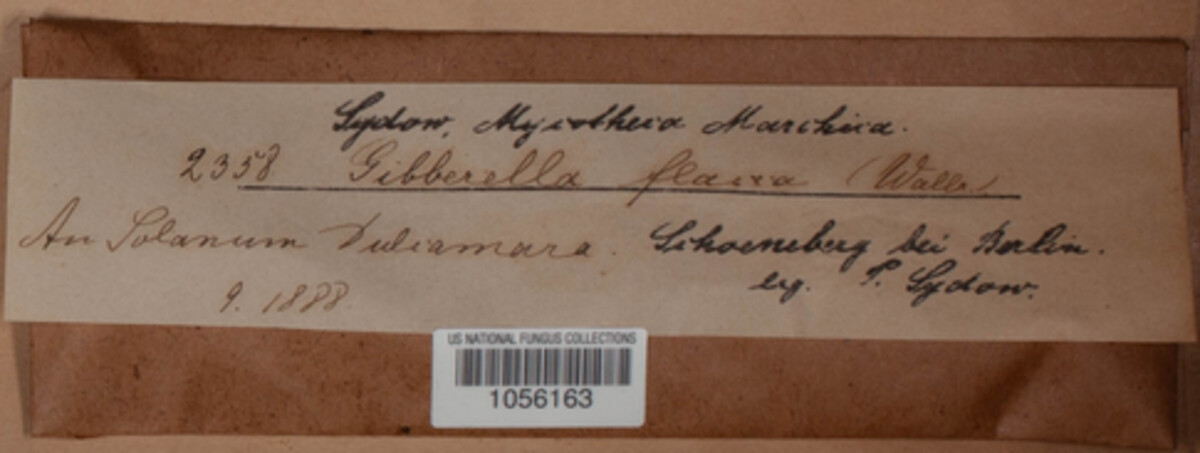 Sydow, Mycotheca Marchica.
2358 Gibberella flacca (Wallr.)
An Solanum Dulcamara. Schoeneberg bei Berlin.
9. 1888. leg. P. Sydow.
US NATIONAL FUNGUS COLLECTIONS
1056163